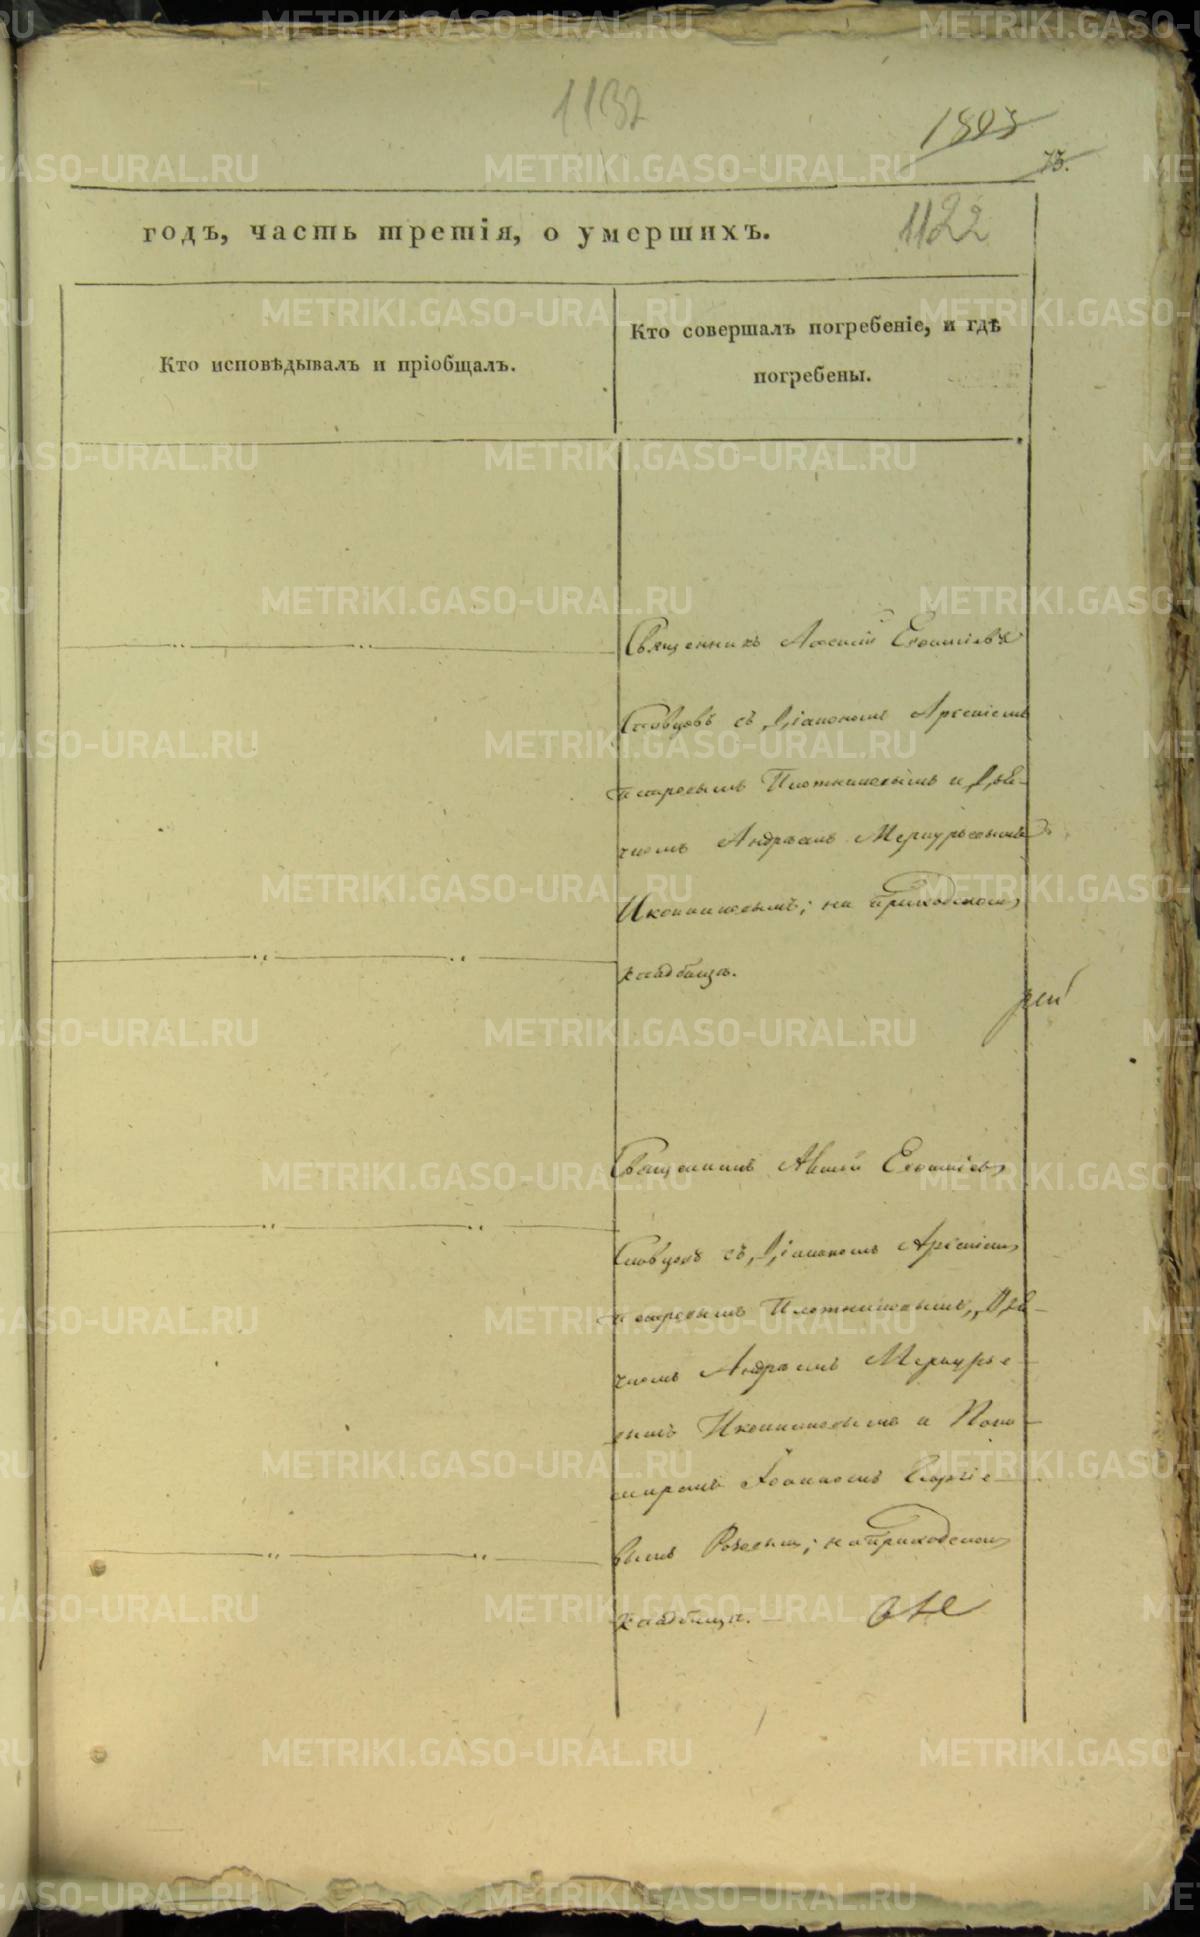 1132
1803
73.
годъ, часть третія, о умершихъ.
1122
Кто исповѣдывалъ и пріобщалъ.
Кто совершалъ погребеніе, и гдѣ
погребены.
Священникъ Алексій
Словцовъ съ Діакономъ Арсеніемъ
Петровымъ Плотниковымъ и Дья-
чкомъ Андреемъ Меркурьевымъ
Иконниковымъ; на приходскомъ
кладбищѣ.
рей
Священникъ Алексій
Словцовъ съ Діакономъ Арсеніемъ
Петровымъ Плотниковымъ, Дья-
чкомъ Андреемъ Меркурье-
вымъ Иконниковымъ и Поно-
маремъ Іоанномъ Георгіе-
вымъ на приходскомъ
кладбищѣ.
METRIKI.GASO-URAL.RU